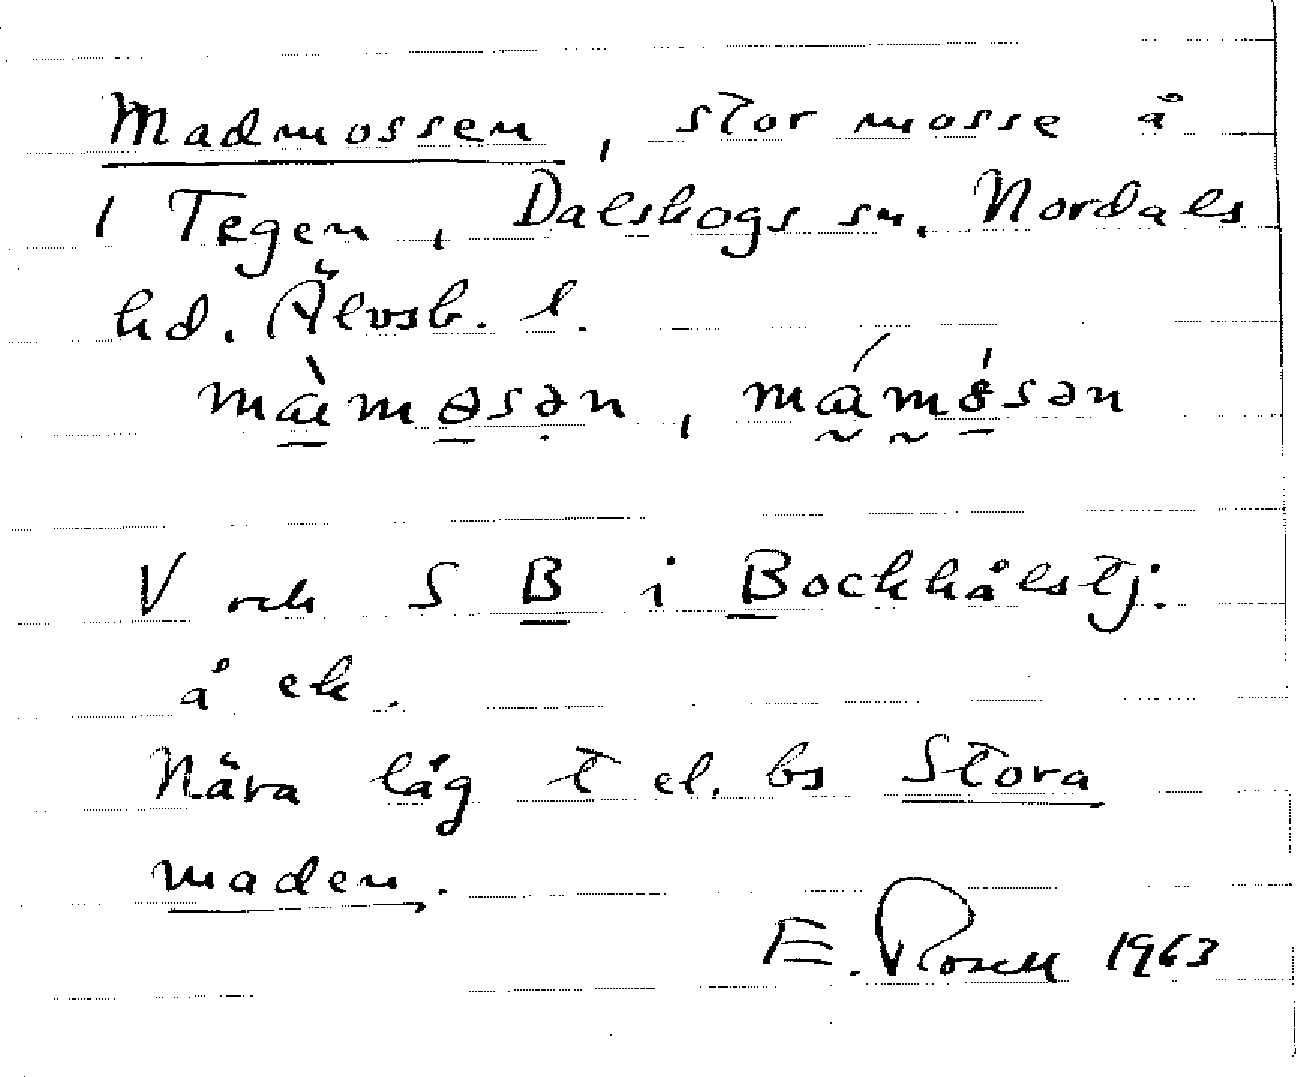 Madmossen, stor mosse å
1 Tegen, Dalskogs sn. Nordals
hd. Älvsb. l.
V och S B i Bockhålstj:
å ek.
Nära låg t el. bs Stora
maden.
E. Rosell 1963